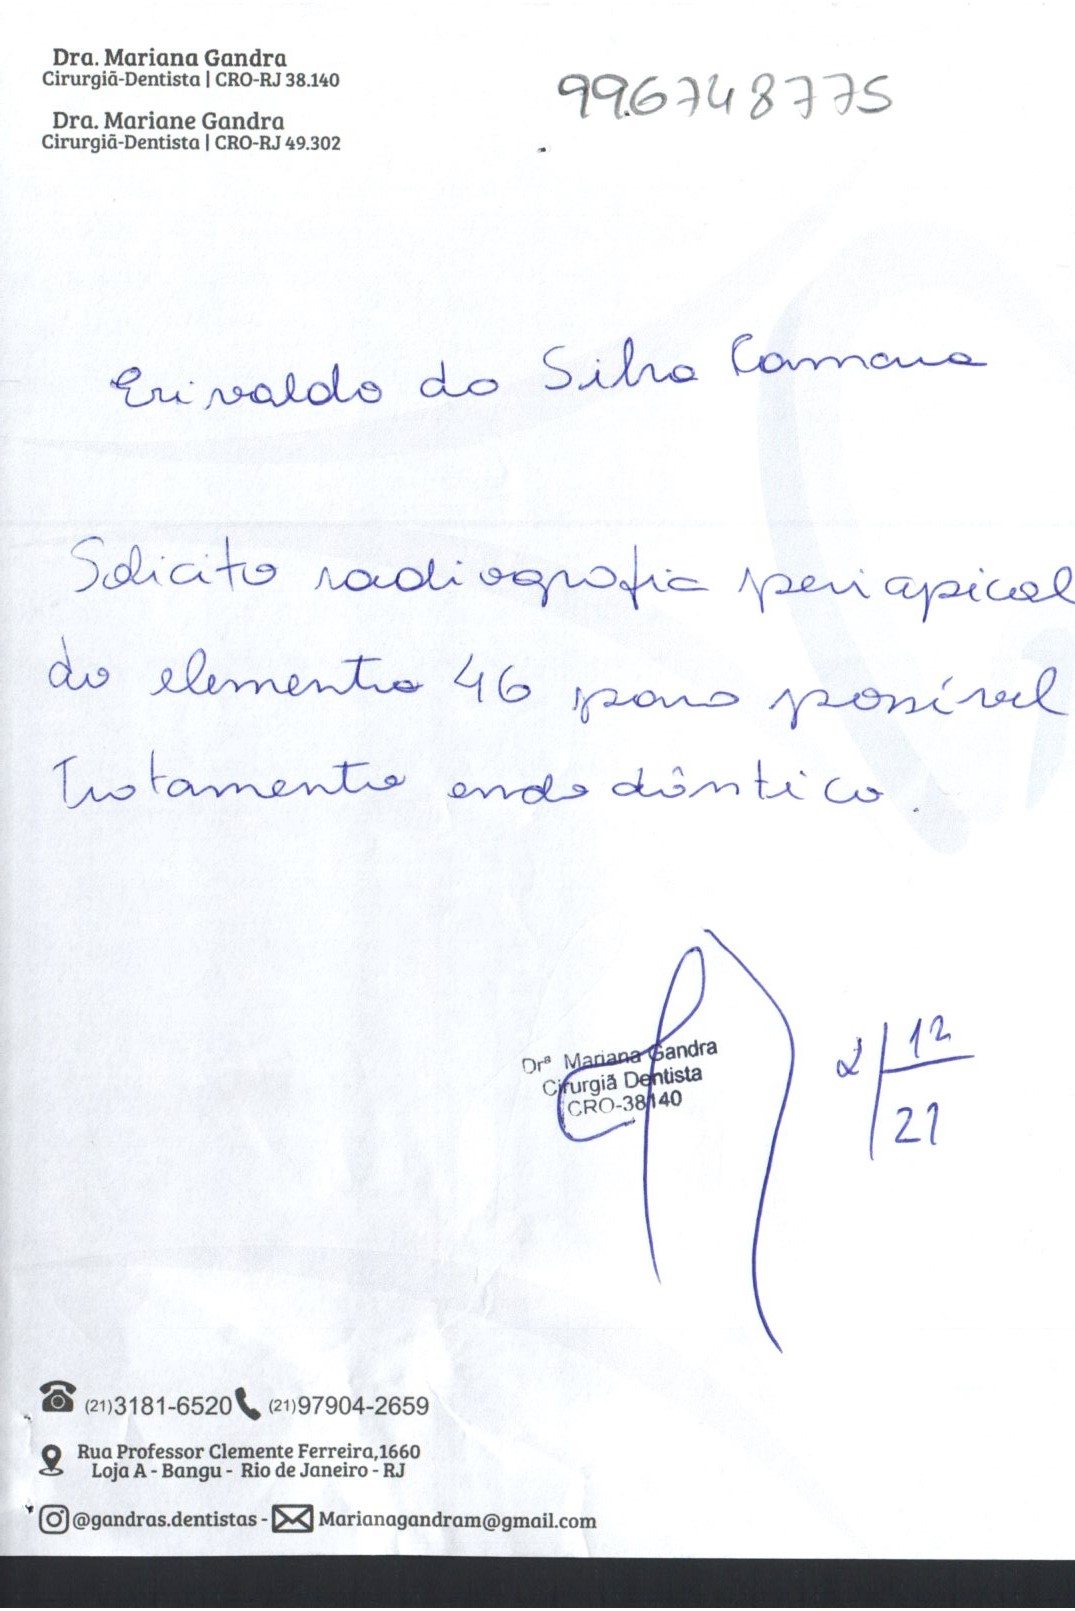 Dra. Mariana Gandra
Cirurgiã-Dentista | CRO-RJ 38.140
Dra. Mariane Gandra
Cirurgiã-Dentista | CRO-RJ 49.302
99.6748775
Erivaldo da Silva Camara
Solicito radiografia periapical
do elemento 46 para possível
Tratamento endodôntico.
Drª Mariana Gandra
Cirurgiã Dentista
CRO-38140
2/12
21
(21)3181-6520 (21)97904-2659
Rua Professor Clemente Ferreira,1660
Loja A - Bangu - Rio de Janeiro - RJ
@gandras.dentistas - Marianagandram@gmail.com